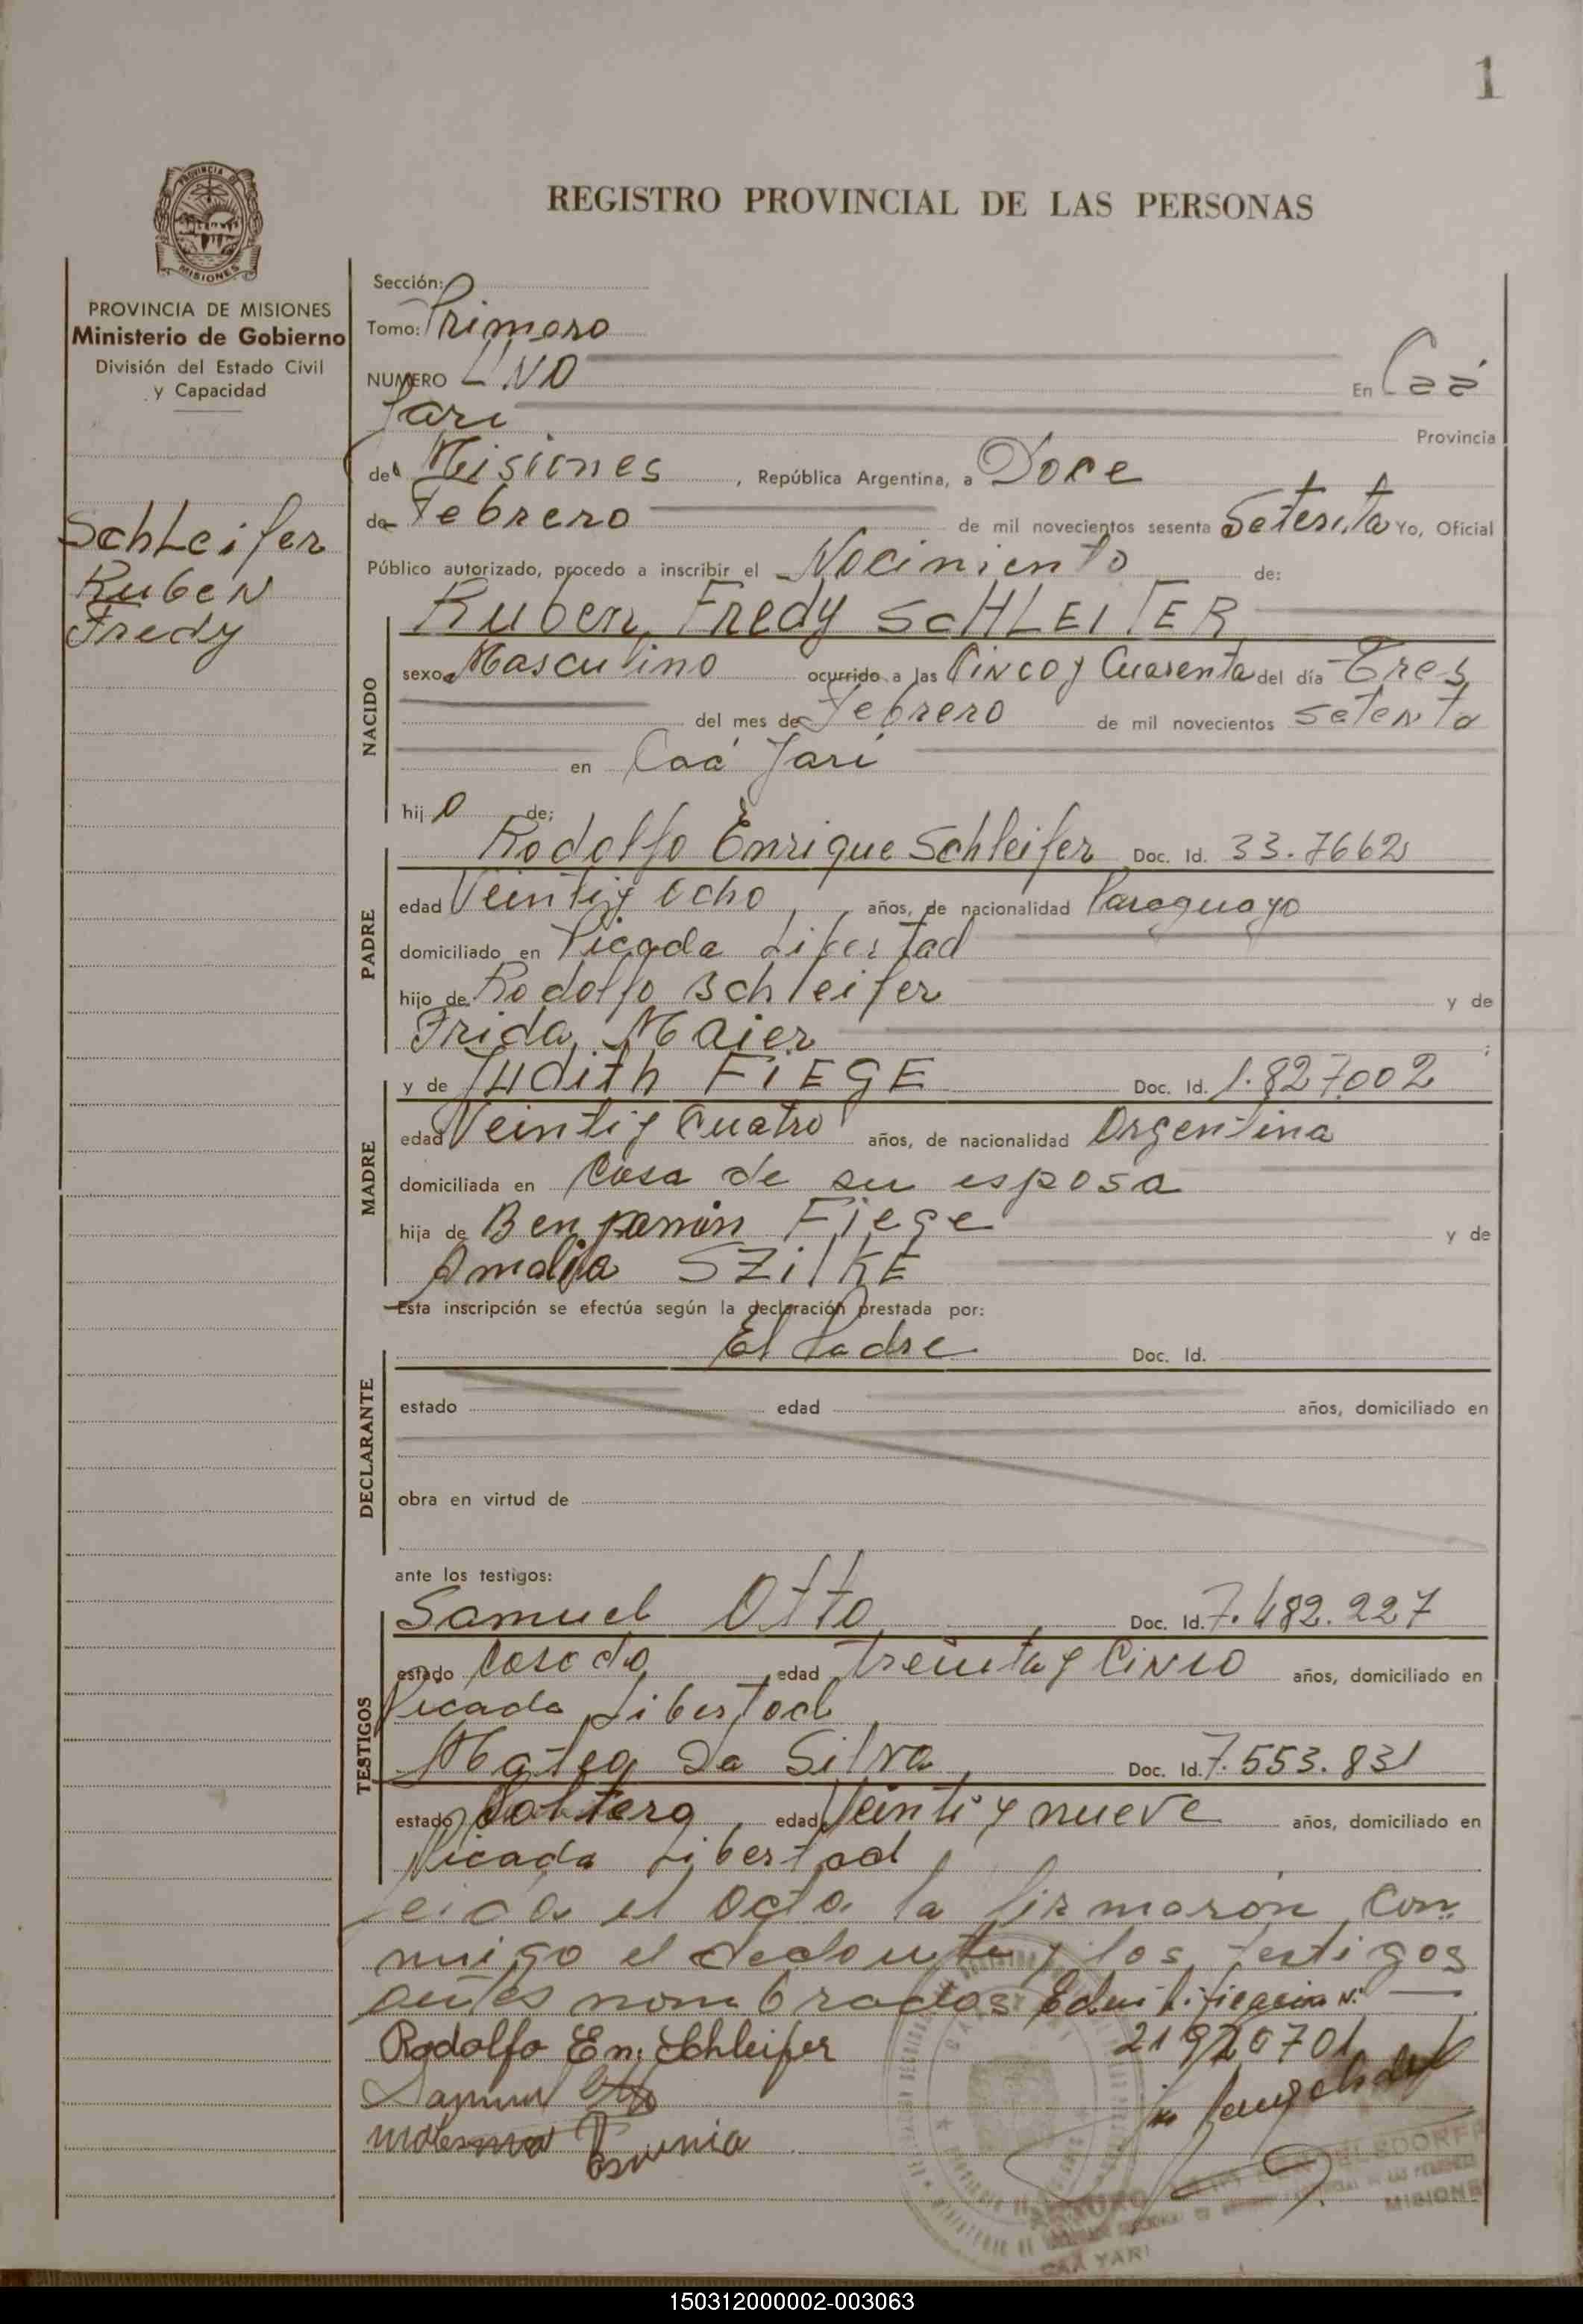 1
REGISTRO PROVINCIAL DE LAS PERSONAS
PROVINCIA DE MISIONES
Ministerio de Gobierno
División del Estado Civil
y Capacidad
Schleifer
Ruben
Fredy
Sección:
Tomo: Primero
NUMERO UNO En Caá
Yari
Provincia
de Misiones, República Argentina, a Doce
de Febrero de mil novecientos sesenta Setenta Yo, Oficial
Público autorizado, procedo a inscribir el Nacimiento de:
Ruben Fredy SCHLEIFER
NACIDO
sexo Masculino ocurrido a las Cinco y Cuarenta del día Tres
del mes de Febrero de mil novecientos Setenta
en Caá Yari
hijo de;
PADRE
Rodolfo Enrique Schleifer Doc. Id. 33.7662
edad Veinti y ocho años, de nacionalidad Paraguayo
domiciliado en Picada Libertad
hijo de Rodolfo Schleifer y de
Frida Maier ;
MADRE
y de Judith FIEGE Doc. Id. 1.827.002
edad Veinti y Cuatro años, de nacionalidad Argentina
domiciliada en Casa de su esposa
hija de Benjamin Fiege y de
Amalia SZILKE
Esta inscripción se efectúa según la declaración prestada por:
DECLARANTE
El Padre Doc. Id.
estado edad años, domiciliado en
obra en virtud de
ante los testigos:
TESTIGOS
Samuel Otto Doc. Id. 7.482.227
estado Casado edad treinta y Cinco años, domiciliado en
Picada Libertad
Da Silva Doc. Id. 7.553.831
estado Soltero edad Veinti y nueve años, domiciliado en
Picada Libertad
Leida el acta la firmaron con
migo el declarante y los testigos
antes nombrados
21920701
Rodolfo En. Schleifer
Samuel Otto
CAA YARI
MISIONES
150312000002-003063